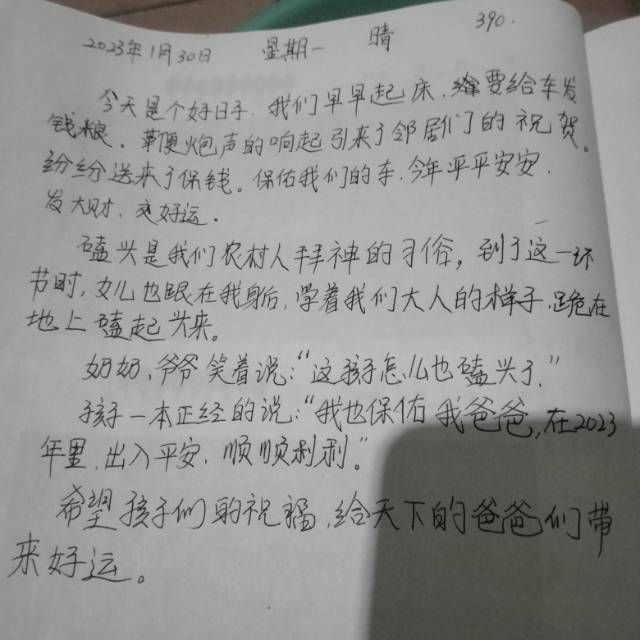 390.
2023年1月30日 星期一 晴
今天是个好日子,我们早早起床,要给车发
钱粮。鞭炮声的响起引来了邻居们的祝贺。
纷纷送来了保钱。保佑我们的车,今年平平安安,
发大财,交好运。
磕头是我们农村人拜神的习俗,到了这一环
节时,女儿也跟在我身后,学着我们大人的样子,跪在
地上磕起头来。
奶奶、爷爷笑着说:“这孩子怎么也磕头了。”
孩子一本正经的说:“我也保佑我爸爸,在2023
年里,出入平安,顺顺利利。”
希望孩子们的祝福,给天下的爸爸们带
来好运。